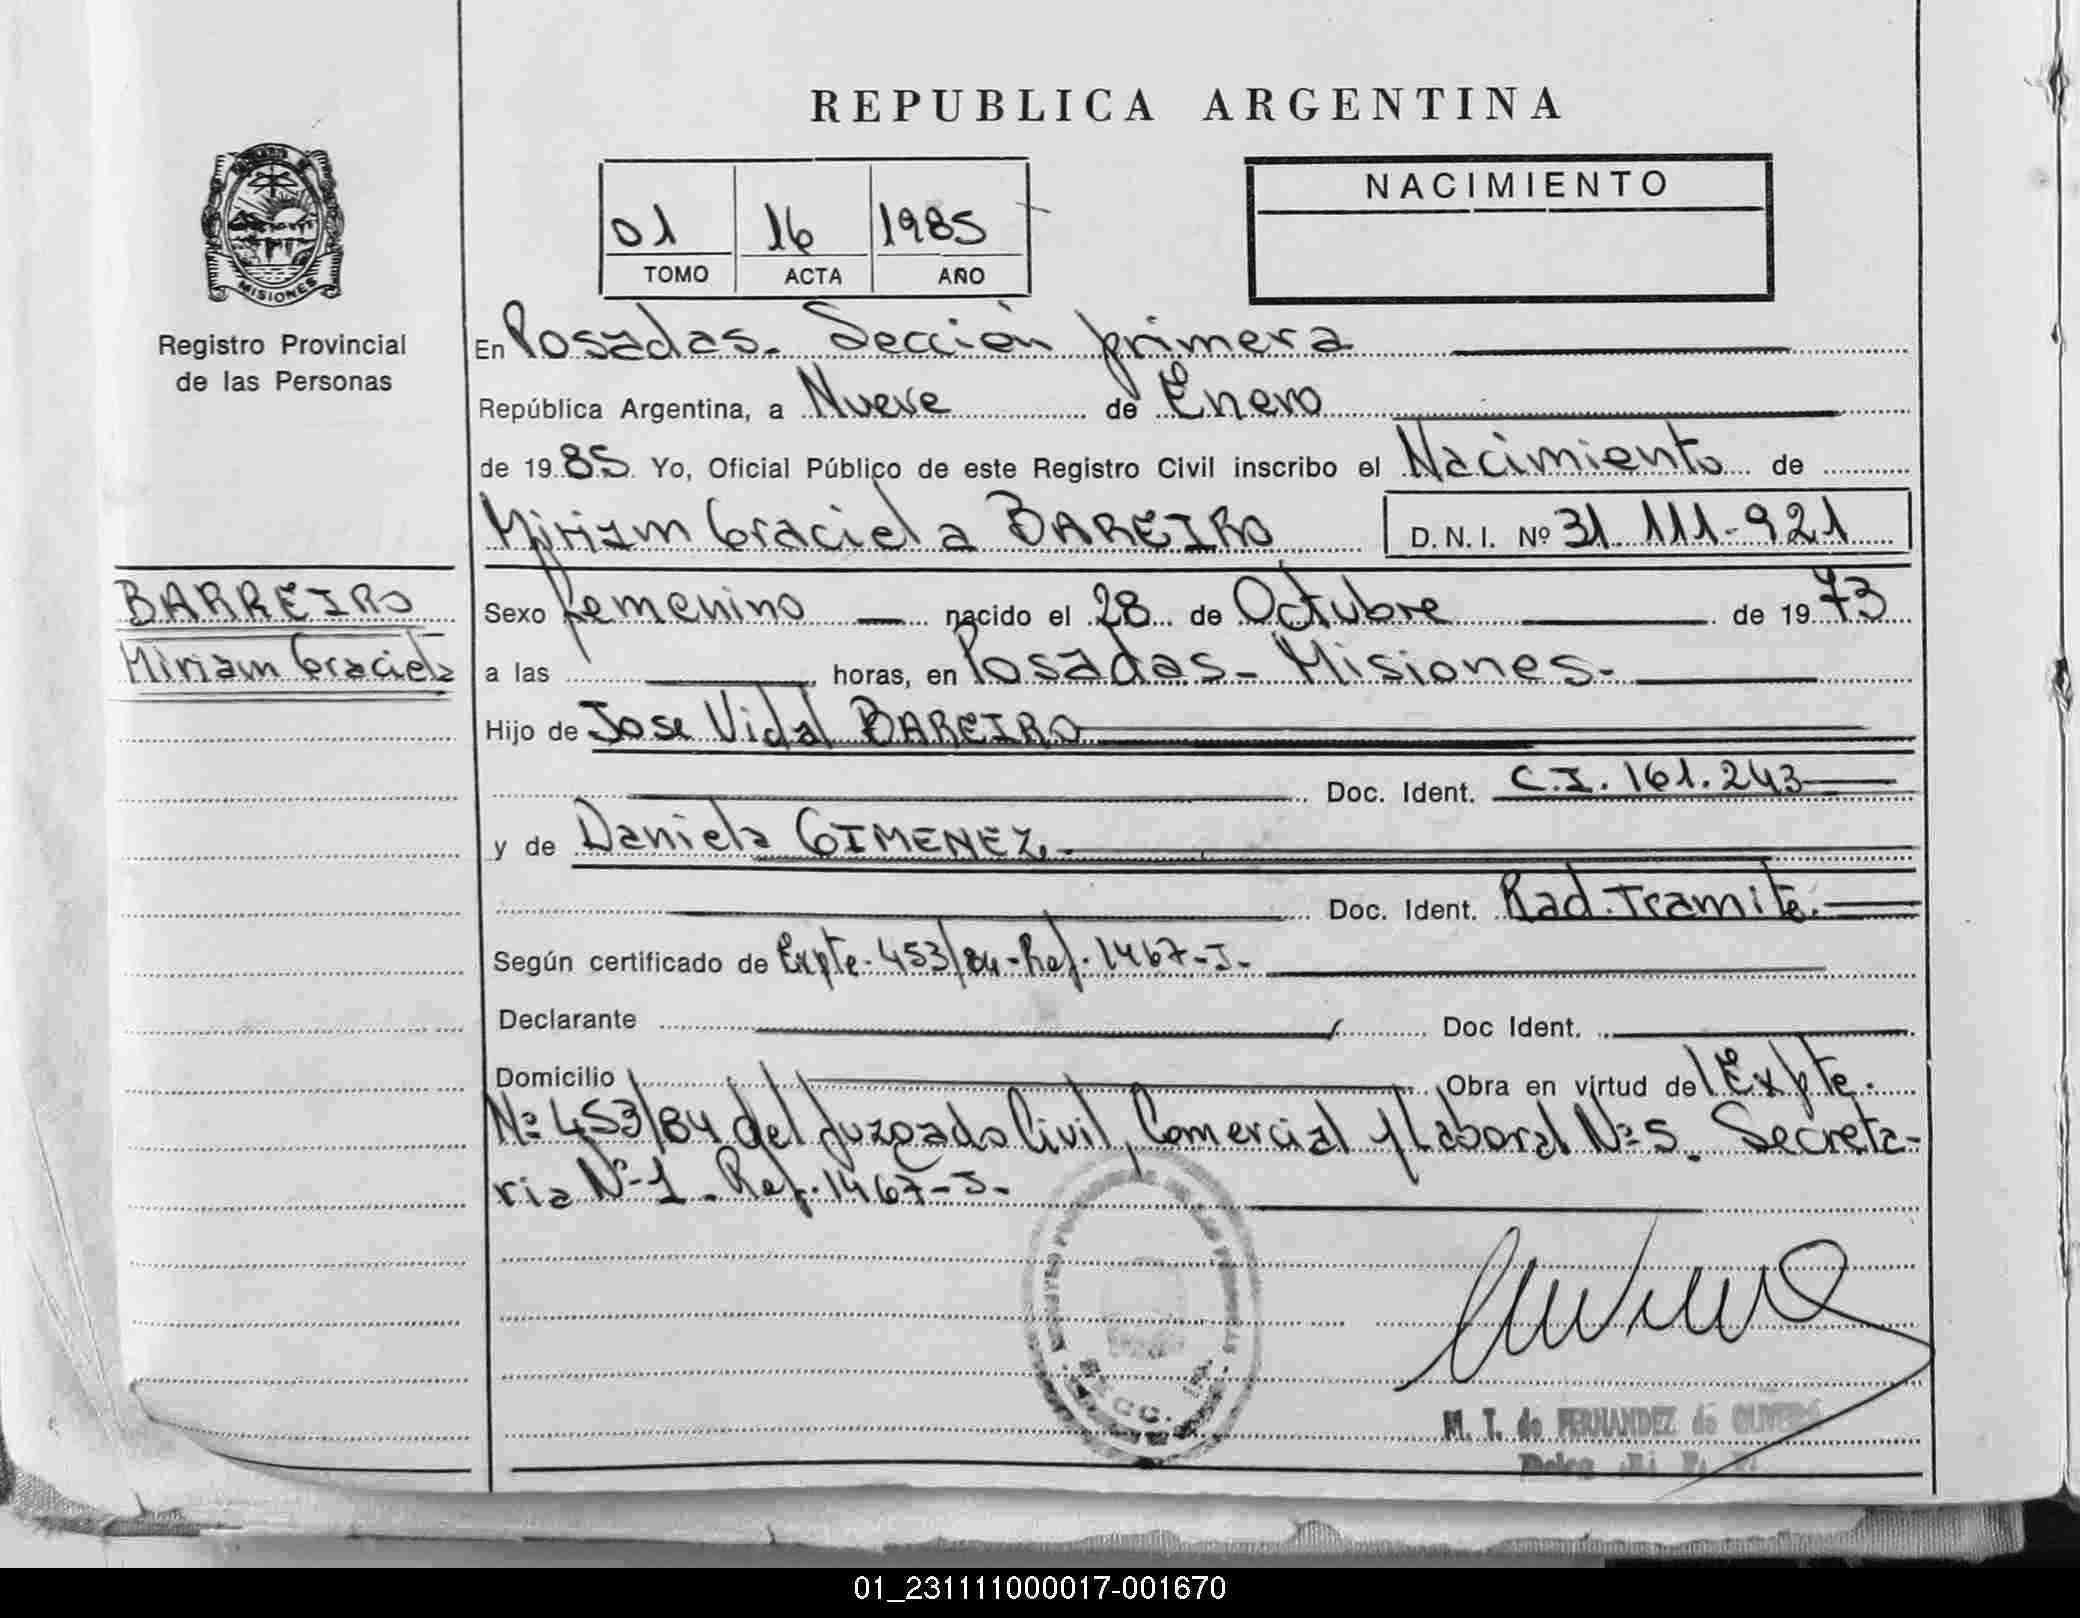 REPUBLICA ARGENTINA
MISIONES
Registro Provincial
de las Personas
01 16 1985
TOMO ACTA AÑO
NACIMIENTO
En Posadas. Sección primera
República Argentina, a Nueve de Enero
de 1985. Yo, Oficial Público de este Registro Civil inscribo el Nacimiento de
Miriam Graciela BAREIRO D.N.I. Nº 31 111-921
BARREIRO
Miriam Graciela
Sexo femenino nacido el 28 de Octubre de 1973
a las horas, en Posadas - Misiones-
Hijo de Jose Vidal BAREIRO
Doc. Ident. C.I. 161.243
y de Daniela GIMENEZ.-
Doc. Ident. Rad. Tramite.
Según certificado de Expte. 453/84-Ref. 1467-J-
Declarante Doc Ident.
Domicilio Obra en virtud del Expte.
Nº 453/84 del Juzgado Civil, Comercial y Laboral Nº 5. Secreta-
ria Nº 1 - Ref. 1467-J-
M. T. de FERNANDEZ de OLIVERA
01_231111000017-001670